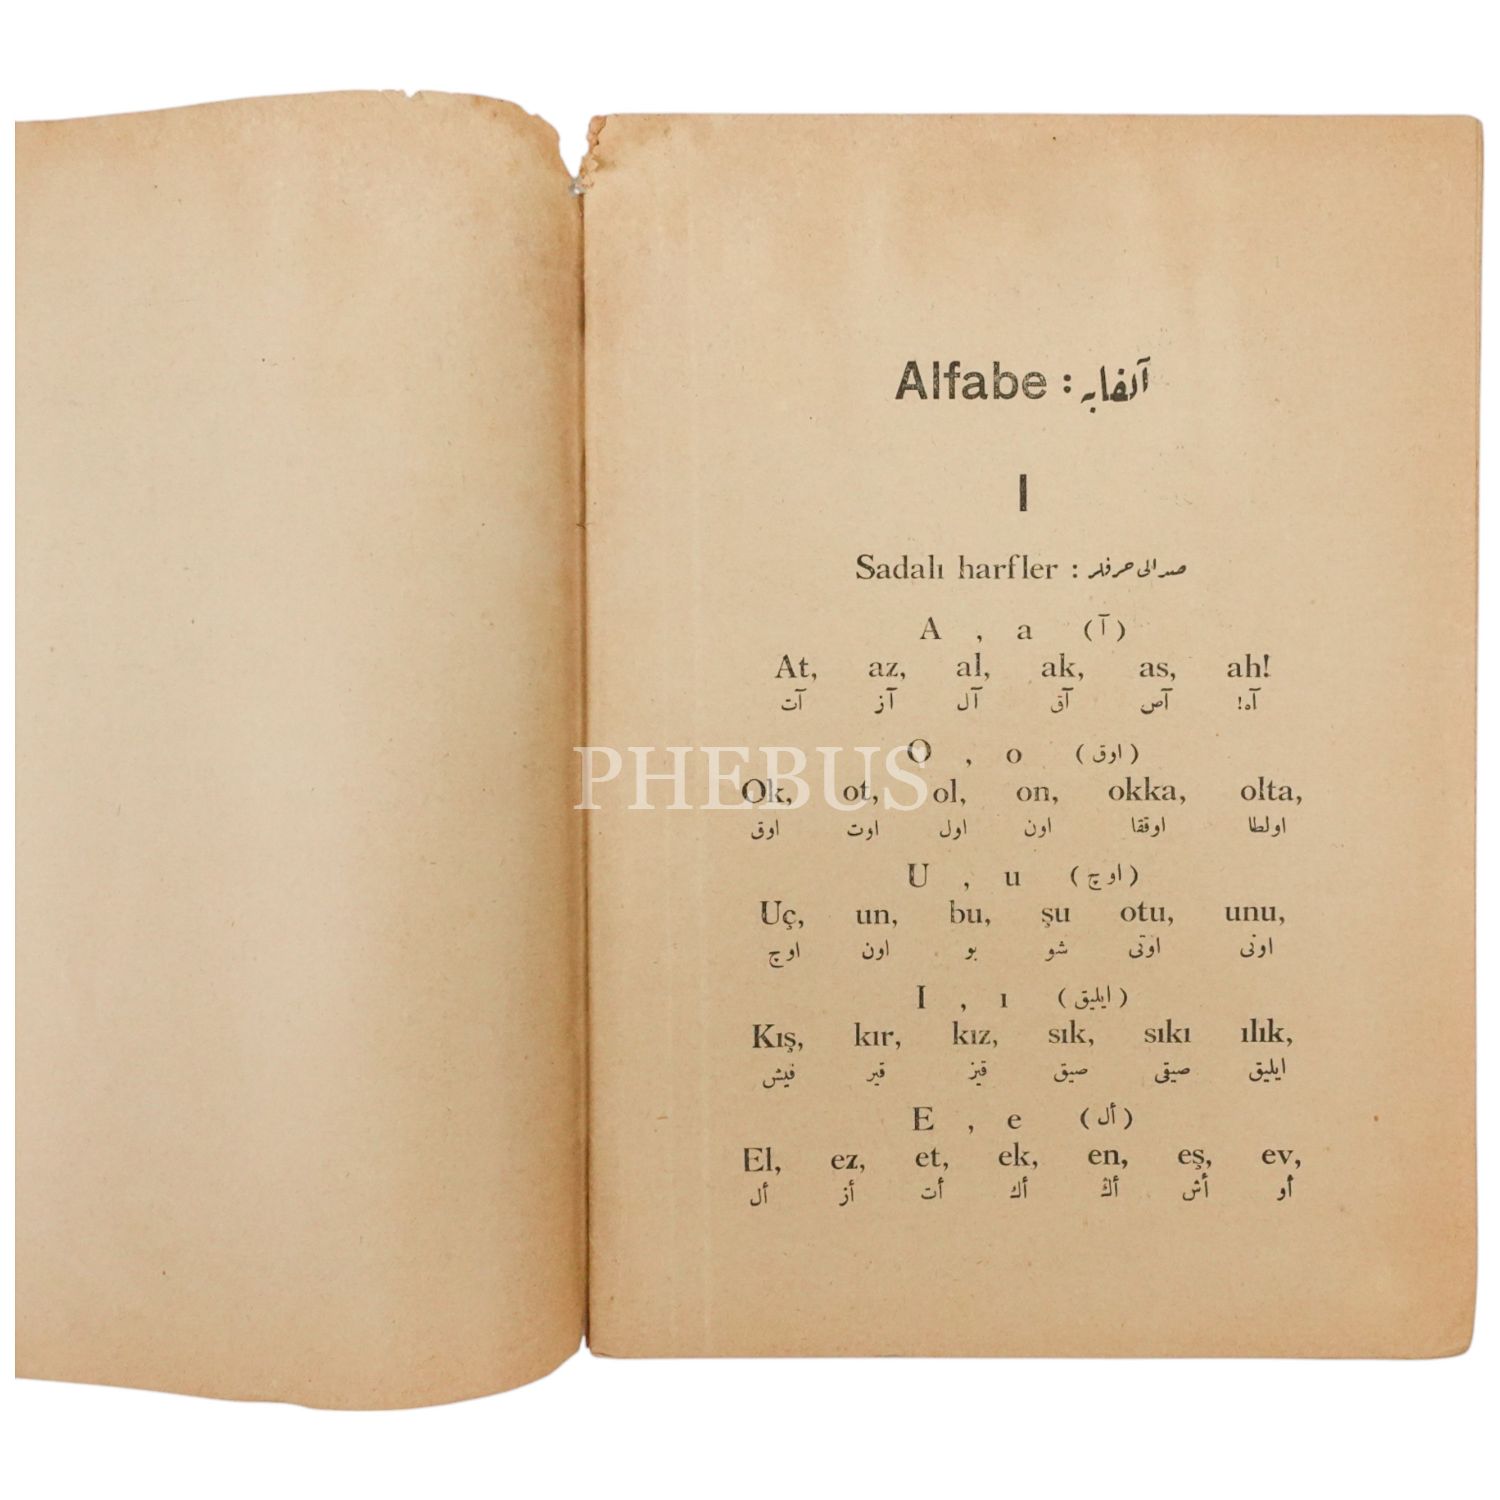 Alfabe : آلفابه
I
Sadalı harfler : صدالی حرفلر
A , a (آ)
At, az, al, ak, as, ah!
آت آز آل آق آص آه!
O , o (اوق)
Ok, ot, ol, on, okka, olta,
اوق اوت اول اون اوققا اولطا
U , u (اوچ)
Uç, un, bu, şu otu, unu,
اوچ اون بو شو اوتی اونی
I , ı (ایلیق)
Kış, kır, kız, sık, sıkı ılık,
قیش قیر قیز صیق صیقی ایلیق
E , e (أل)
El, ez, et, ek, en, eş, ev,
أل أز أت أك أڭ أش أو
PHEBUS